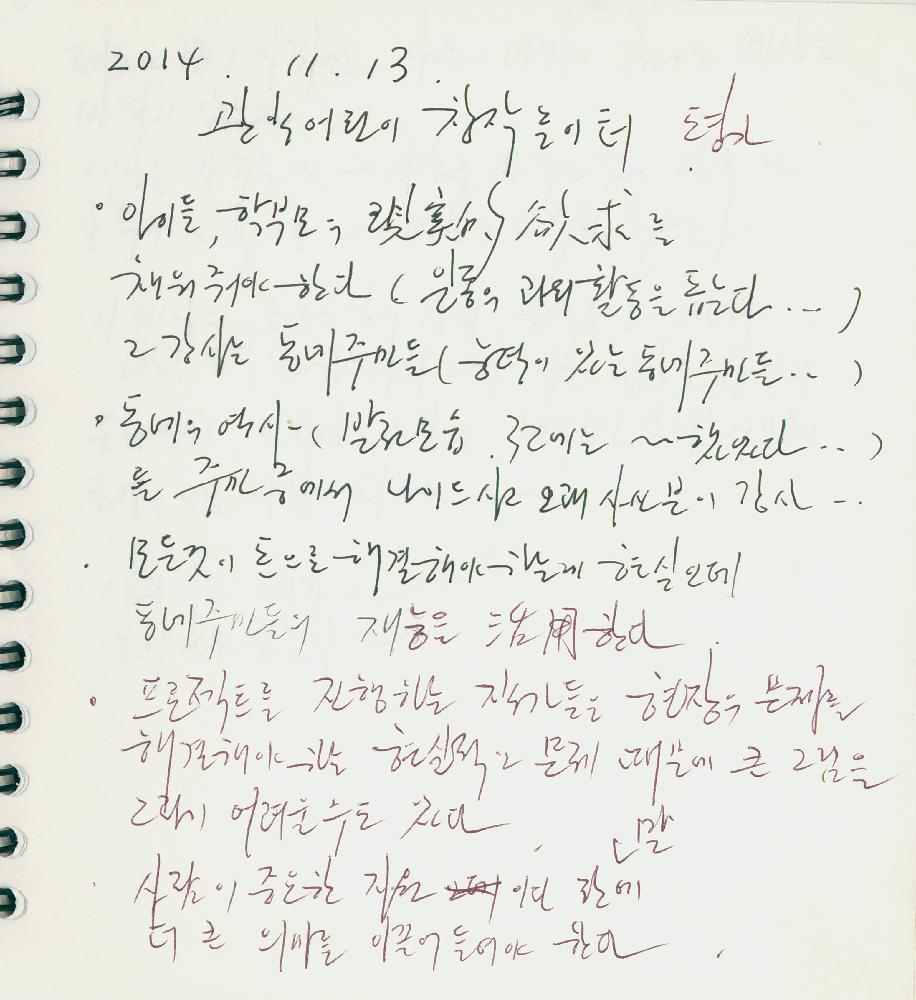 2014. 11. 13.
관악어린이 창작놀이터 평가
• 아이들, 학부모의 現実的 欲求를
채워주어야 한다 (일종의 과외활동을 돕는다...)
그 강사는 동네주민들 (능력이 있는 동네주민들..)
• 동네의 역사 (발전모습. 근에는 ~했었다...)
를 주민중에서 나이드시고 오래 사신분이 강사...
. 모든것이 돈으로 해결해야 하는게 현실인데
동네주민들의 재능을 活用한다.
• 프로젝트를 진행하는 작가들은 현장의 문제를
해결해야 하는 현실적인 문제 때문에 큰 그림을
그리기 어려울수도 있다.
. 사람이 중요한 지원 이란 말에
더 큰 의미를 이끌어 들여야 한다.